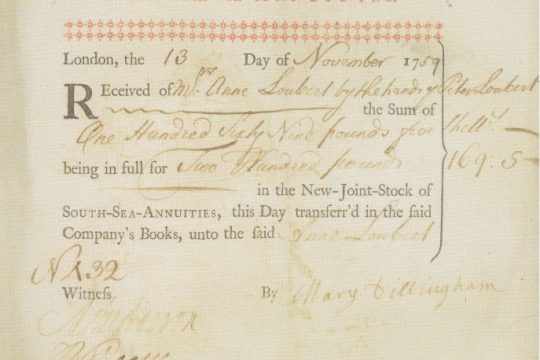 London, the 13 Day of November 1759
Received of Mrs. Anne Loubert by the hands of Peter Loubert
the Sum of
One Hundred Sixty Nine pounds five Shells
being in full for Two Hundred pounds 169. 5 –
in the New-Joint-Stock of
South-Sea-Annuities, this Day transferr'd in the said
Company's Books, unto the said Anne Loubert
No. 132
Witness By Mary Dillingham